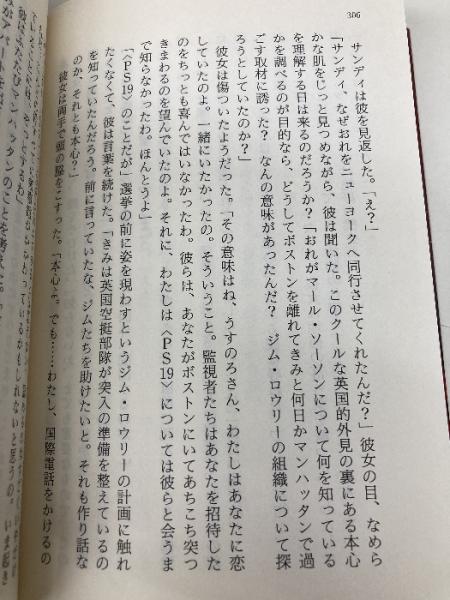 306
サンディは彼を見返した。「え？」
「サンディ、なぜおれをニューヨークへ同行させてくれたんだ？」彼女の目、なめら
かな肌をじっと見つめながら、彼は聞いた。このクールな英国的外見の裏にある本心
を理解する日は来るのだろうか？「おれがマール・ソーソンについて何を知っている
かを調べるのが目的なら、どうしてボストンを離れてきみと何日かマンハッタンで過
ごす取材に誘った？　なんの意味があったんだ？　ジム・ロウリーの組織について探
ろうとしていたのか？」
彼女は傷ついたようだった。「その意味はね、うすのろさん、わたしはあなたに恋
していたのよ。一緒にいたかったの。そういうこと。監視者たちはあなたを招待した
のをちっとも喜んではいなかったわ。彼らは、あなたがボストンにいてあちこち突つ
きまわるのを望んでいたのよ。それに、わたしは〈ＰＳ19〉については彼らと会うま
で知らなかったわ。ほんとうよ」
「〈ＰＳ19〉のことだが」選挙の前に姿を現わすというジム・ロウリーの計画に触れ
たくなくて、彼は言葉を続けた。「きみは英国空挺部隊が突入の準備を整えているの
を知っていたんだろう。前に言っていたな、ジムたちを助けたいと。それも作り話な
のか、それとも本心？」
彼女は両手で頭の脇をこすった。「本心よ。でも……わたし、国際電話をかけるの